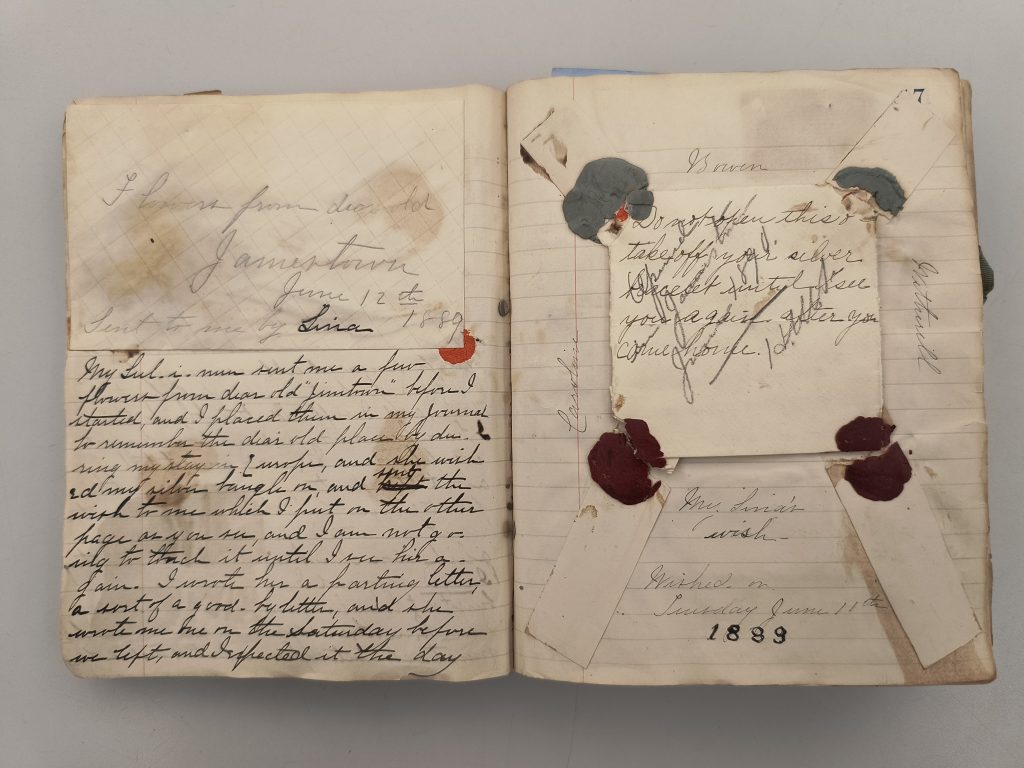 Flowers from dear old
Jamestown
June 12th
1889
Sent to me by Lina
My Lul. i. nun sent me a few
flowers from dear old "jimtown" before I
started, and I placed them in my journal
to remember the dear old place by du-
ring my stay in Europe, and she wish
ed my silver bangle on, and sent the
wish to me which I put on the other
page as you see, and I am not go-
ing to touch it until I see her a-
gain. I wrote her a parting letter,
a sort of a good-by letter, and she
wrote me one on the Saturday before
we left, and I expected it the day
7
Bowen
Do not open this or
take off your silver
bracelet until I see
you again after you
come home.
Caroline
Wetherill
Me. Lina's
wish-
Wished on
Tuesday June 11th
1889